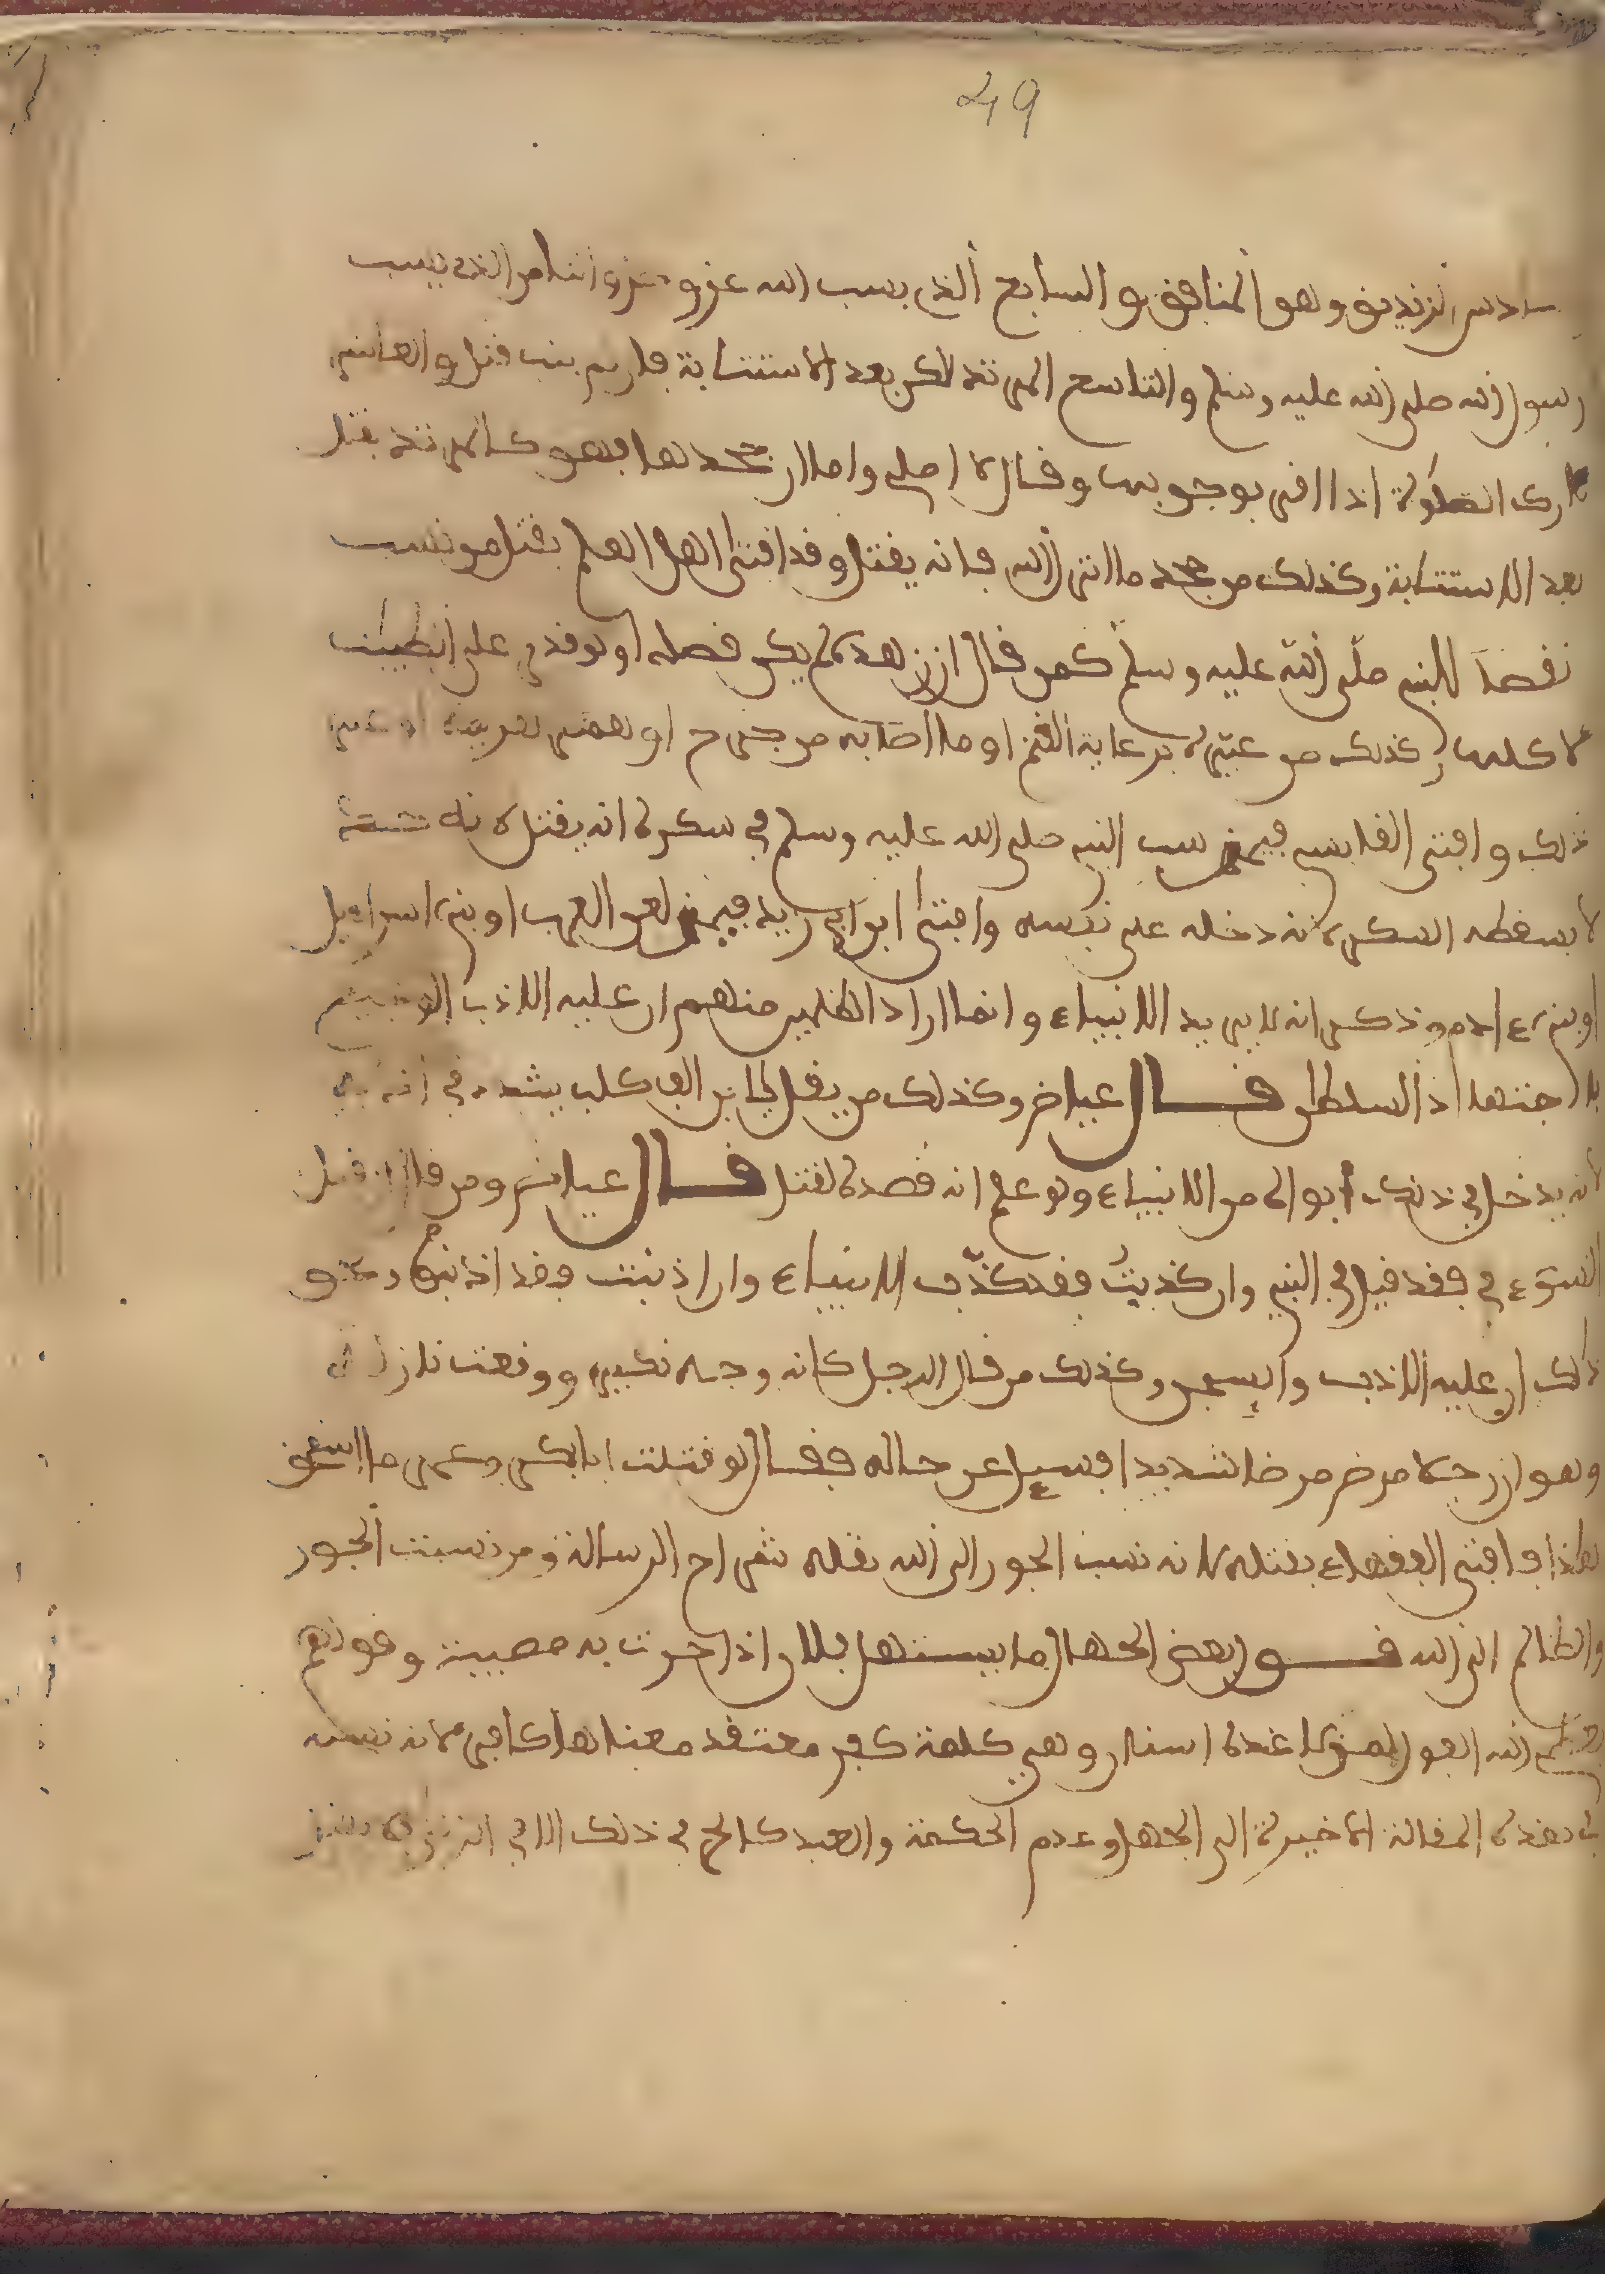 49
سادس الزنديق وهو المنافق والسابع الذي يسب الله عز وجل والثامن الذي يسب
رسول الله صلى الله عليه وسلم والتاسع المرتد لكن بعد الاستتابة فإن لم يتب قتل والعاشر
تارك الصلوة إذا اقر بوجوبها وقال لا اصلي واما ان جحدها فهو كالمرتد يقتل
بعد الاستتابة وكذلك من جحد ما انزل الله فانه يقتل وقد افتى اهل العلم بقتل من نسب
نقصا للنبي صلى الله عليه وسلم كمن قال ان زهده لم يكن قصدا ولو قدر على الطيبات
لاكلها وكذلك من عيره برعاية الغنم او ما اصابه من جرح او هضم او غير
ذلك وافتى القابسي فيمن سب النبي صلى الله عليه وسلم في سكره انه يقتل لانه حد
لا يسقطه السكر لانه دخله على نفسه وافتى ابن ابي زيد فيمن لعن العرب او بني اسراءيل
او بني ءادم وذكر انه لم يرد الانبياء وانما اراد الظلمين منهم ان عليه الادب
باجتهاد السلطن قال عياض وكذلك من يقل يا بن الف كلب يشدد في
لانه يدخل في ذلك ابوالى من الانبياء ولو علم انه قصده لقتل قال عياض ومن قال ان قيل
السوء في فقد قيل في النبي وان كذبت فقد كذب الانبياء وان اذنبت فقد اذنبوا ونحو
ذلك ان عليه الادب والسجن وكذلك من قال لرجل كانه وجه نكير ووقعت نازلة
وهو ان رجلا مرض مرضا شديدا فسيل عن حاله فقال لو قتلت ابا بكر وعمر ما استحق
هاذا فافتى الفقهاء بقتله لانه نسب الجور الى الله نقله شراح الرسالة ومن نسبت الجور
والظلم الى الله قول بعض الجهال ما يستهل فلان اذا جرت به مصيبة وقولهم
الله الفول لمن لا عنده اسنان وهي كلمة كفر معتقد معناها كافر لانه نسبه
في هذه المقالة الاخيرة الى الجهل وعدم الحكمة والعبد كالحر في ذلك الا في الزنى